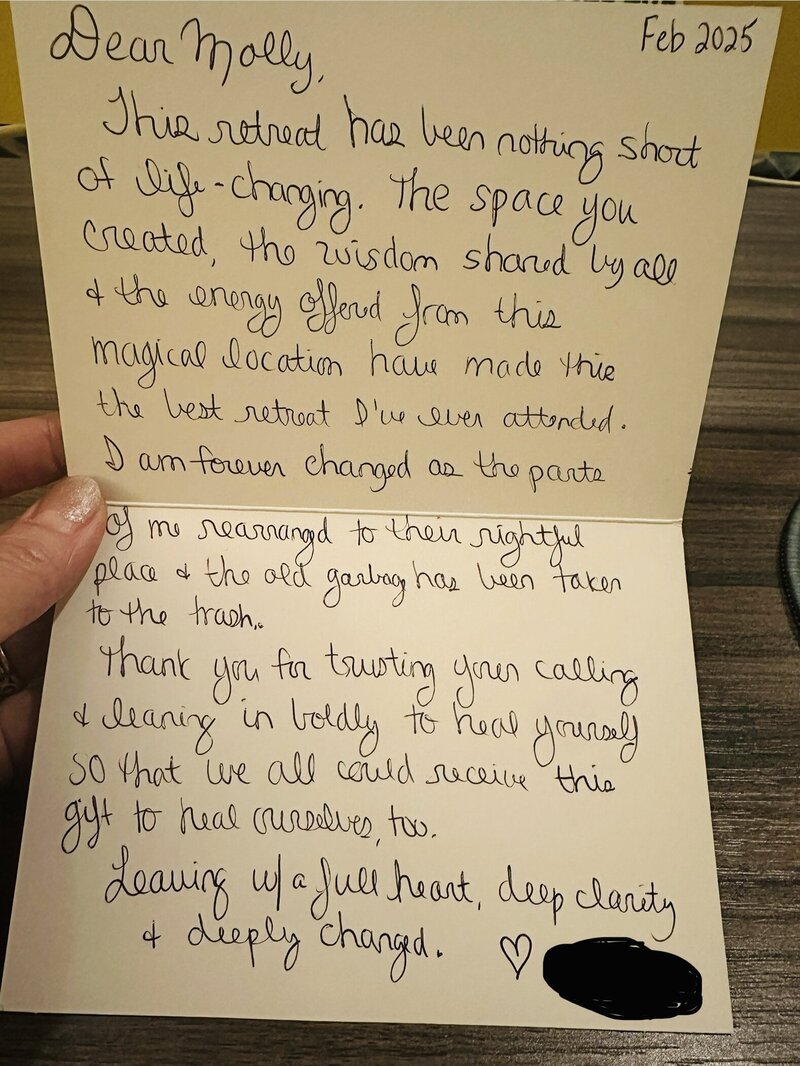 Dear Molly,
Feb 2025
This retreat has been nothing short
of life-changing. The space you
created, the wisdom shared by all
& the energy offered from this
magical location have made this
the best retreat I've ever attended.
I am forever changed as the parts
of me rearrangd to their rightful
place & the old garbag has been taken
to the trash..
Thank you for trusting your calling
& leaning in boldly to heal yourself
so that we all could receive this
gift to heal ourselves, too.
Leaving w/ a full heart, deep clarity
& deeply changed. ♡